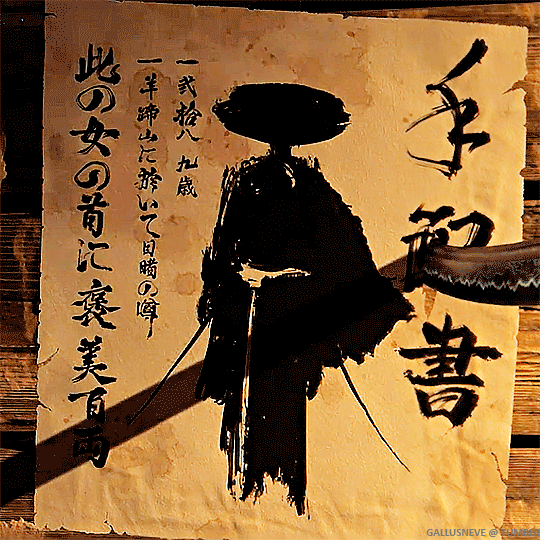 手配書
一 弐拾八 九歳
一 羊蹄山に於いて の噂
此の女の首に褒美百両
GALLUSNEVE @ TUMBLR